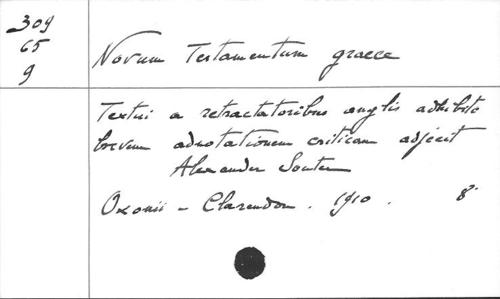 309
65
9
Novum Testamentum graece
Textui a retractatoribus anglis adhibito
brevem adnotationem criticam adjecit
Alexander Souter
Oxonii - Clarendon . 1910 . 8°